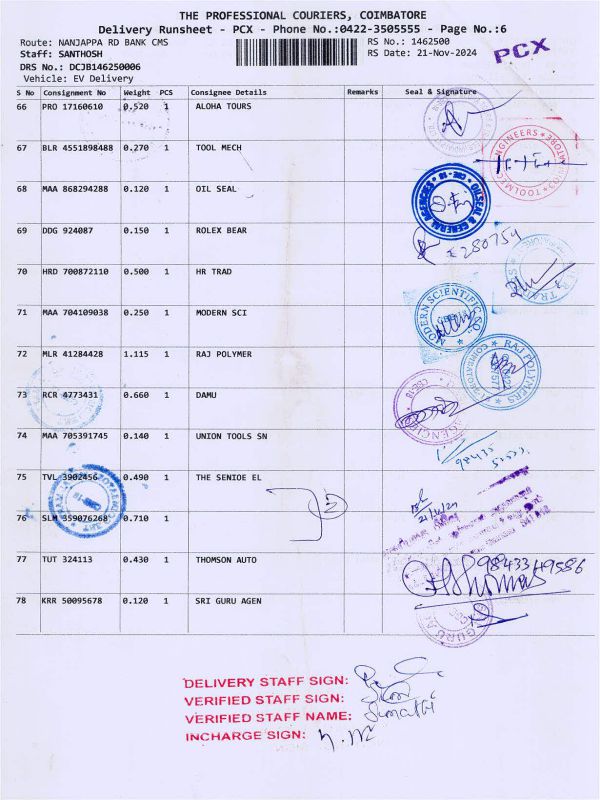 THE PROFESSIONAL COURIERS, COIMBATORE
Delivery Runsheet - PCX - Phone No.:0422-3505555 - Page No.:6
Route: NANJAPPA RD BANK CMS RS No.: 1462500
Staff: SANTHOSH RS Date: 21-Nov-2024
PCX
DRS No.: DCJB146250006
Vehicle: EV Delivery
S No Consignment No Weight PCS Consignee Details Remarks Seal & Signature
66 PRO 17160610 0.520 1 ALOHA TOURS
67 BLR 4551898488 0.270 1 TOOL MECH
68 MAA 868294288 0.120 1 OIL SEAL
69 DDG 924087 0.150 1 ROLEX BEAR
280754
70 HRD 700872110 0.500 1 HR TRAD
71 MAA 704109038 0.250 1 MODERN SCI
MODERN SCIENTIFIC CO.
72 MLR 41284428 1.115 1 RAJ POLYMER
RAJ POLYMERS
73 RCR 4773431 0.660 1 DAMU
74 MAA 705391745 0.140 1 UNION TOOLS SN
75 TVL 3902456 0.490 1 THE SENIOE EL
76 SLM 359076268 0.710 1
2
77 TUT 324113 0.430 1 THOMSON AUTO
9843349586
Thomas
78 KRR 50095678 0.120 1 SRI GURU AGEN
DELIVERY STAFF SIGN:
VERIFIED STAFF SIGN:
VERIFIED STAFF NAME: Sumathi
INCHARGE SIGN: